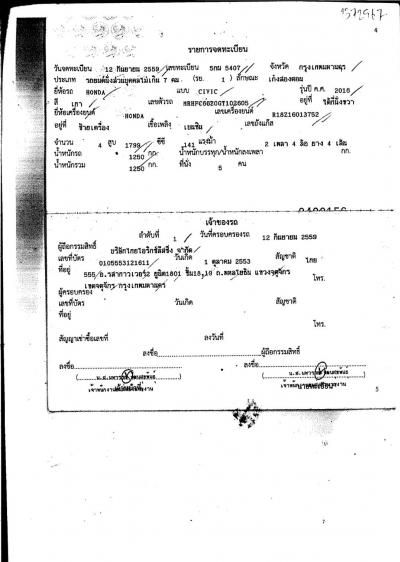 4
รายการจดทะเบียน
วันจดทะเบียน 12 กันยายน 2559 เลขทะเบียน 5กม 5407 จังหวัด กรุงเทพมหานคร
ประเภท รถยนต์นั่งส่วนบุคคลไม่เกิน 7 คน (รย. 1 ) ลักษณะ เก๋งสองตอน
ยี่ห้อรถ HONDA แบบ CIVIC รุ่นปี ค.ศ. 2016
สี เทา เลขตัวรถ อยู่ที่
ยี่ห้อเครื่องยนต์ HONDA เลขเครื่องยนต์ R18Z16013752
อยู่ที่ ซ้ายเครื่อง เชื้อเพลิง เบนซิน เลขถังแก๊ส
จำนวน 4 สูบ 1799 ซีซี 141 แรงม้า 2 เพลา 4 ล้อ ยาง 4 เส้น
น้ำหนักรถ 1250 กก. น้ำหนักบรรทุก/น้ำหนักลงเพลา กก.
น้ำหนักรวม 1250 กก. ที่นั่ง 5 คน
เจ้าของรถ
ลำดับที่ 1 วันที่ครอบครองรถ 12 กันยายน 2559
ผู้ถือกรรมสิทธิ์
เลขที่บัตร 0105553121611 วันเกิด 1 ตุลาคม 2553 สัญชาติ ไทย
ที่อยู่ 555 ถ.พหลโยธิน แขวงจตุจักร
เขตจตุจักร กรุงเทพมหานคร โทร.
ผู้ครอบครอง
เลขที่บัตร วันเกิด สัญชาติ
ที่อยู่
โทร.
สัญญาเช่าซื้อเลขที่ ลงวันที่
ลงชื่อ ผู้ถือกรรมสิทธิ์
ลงชื่อ ลงชื่อ
5